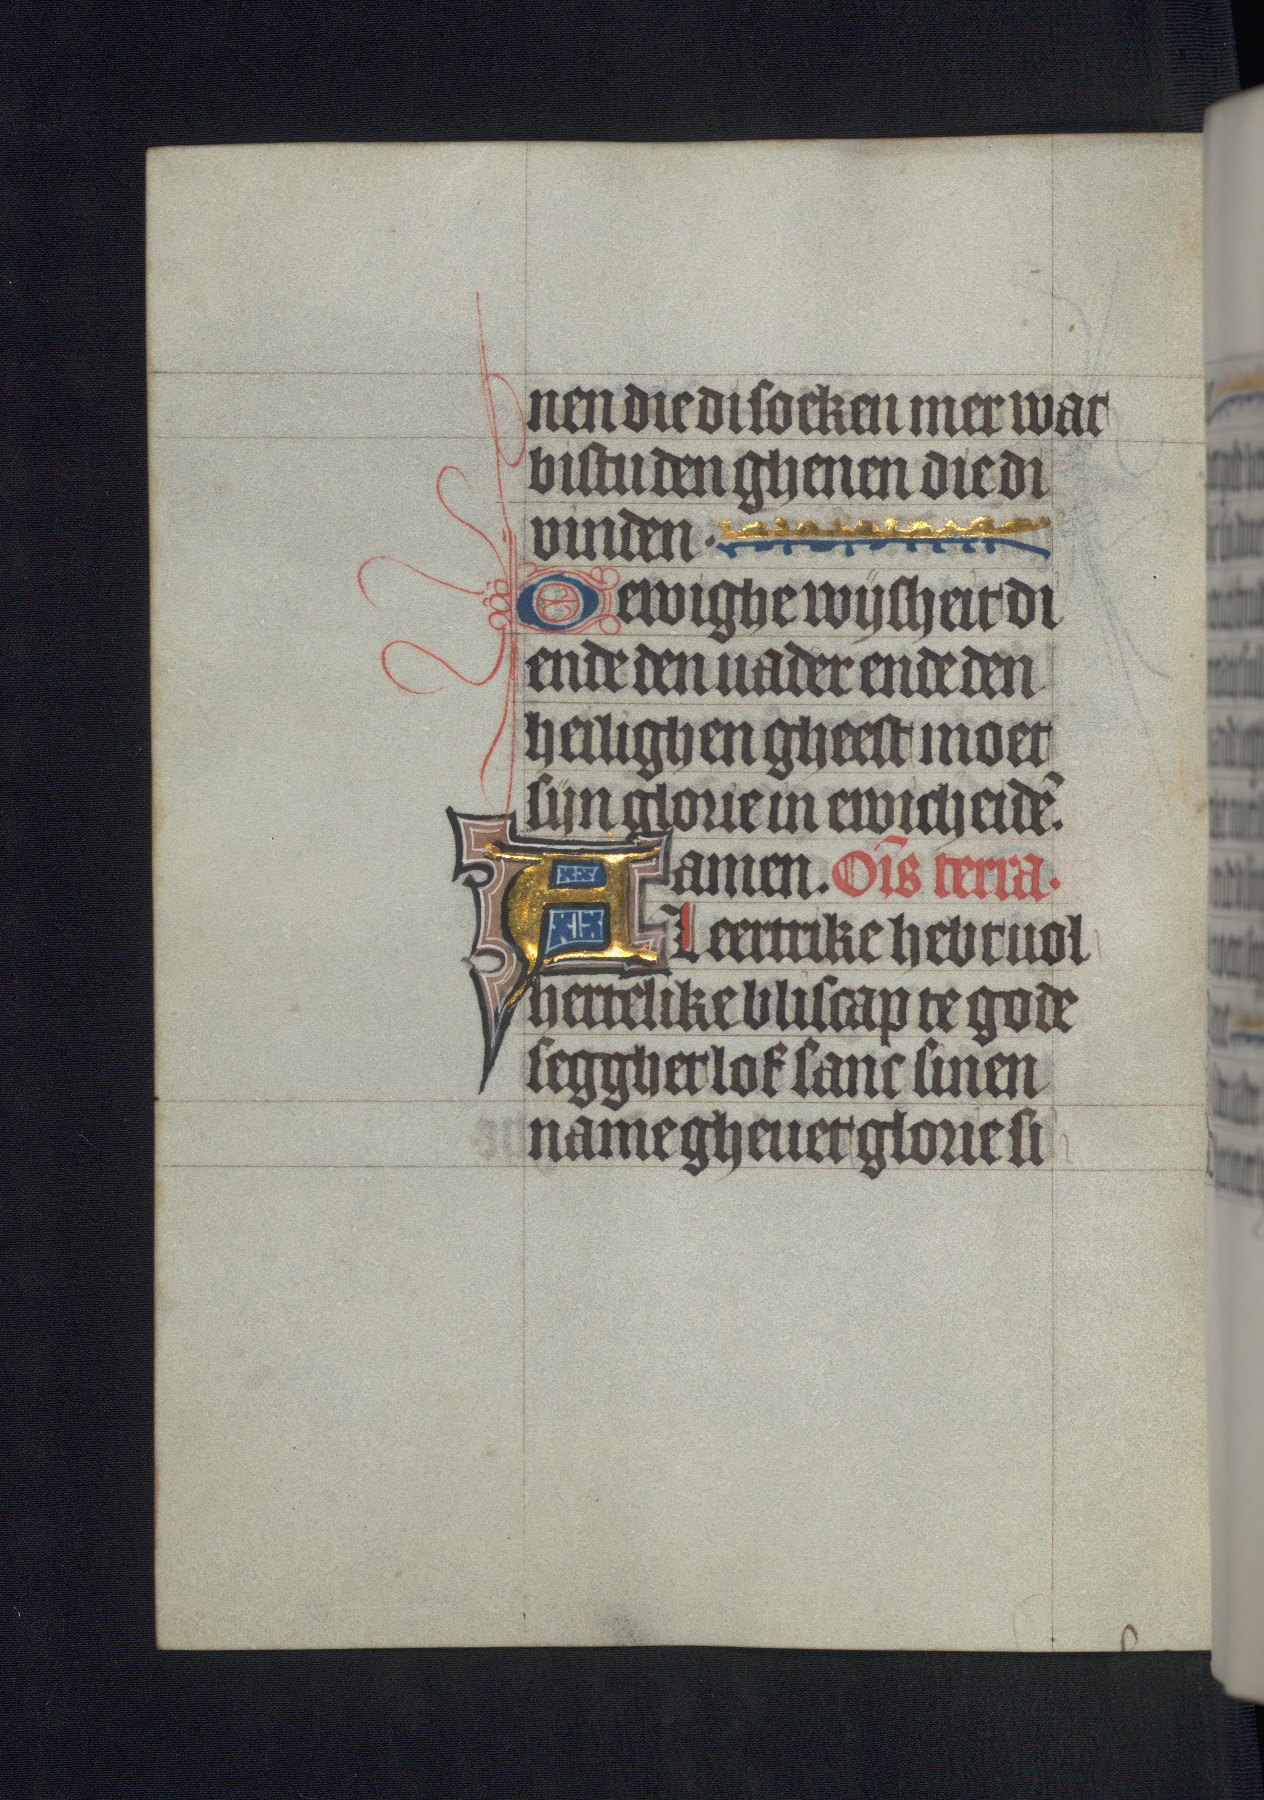 nen die di soeken mer wat
bistu den ghenen die di
vinden ·
O ewighe wijsheit di
ende den uader ende den
heilighen gheest moet
sijn glorie in ewicheidē.
amen. Oīs terra.
Alleertrike hebt uol
hertelike bliscap te gode
segghet lof sanc sinen
name gheuet glorie si